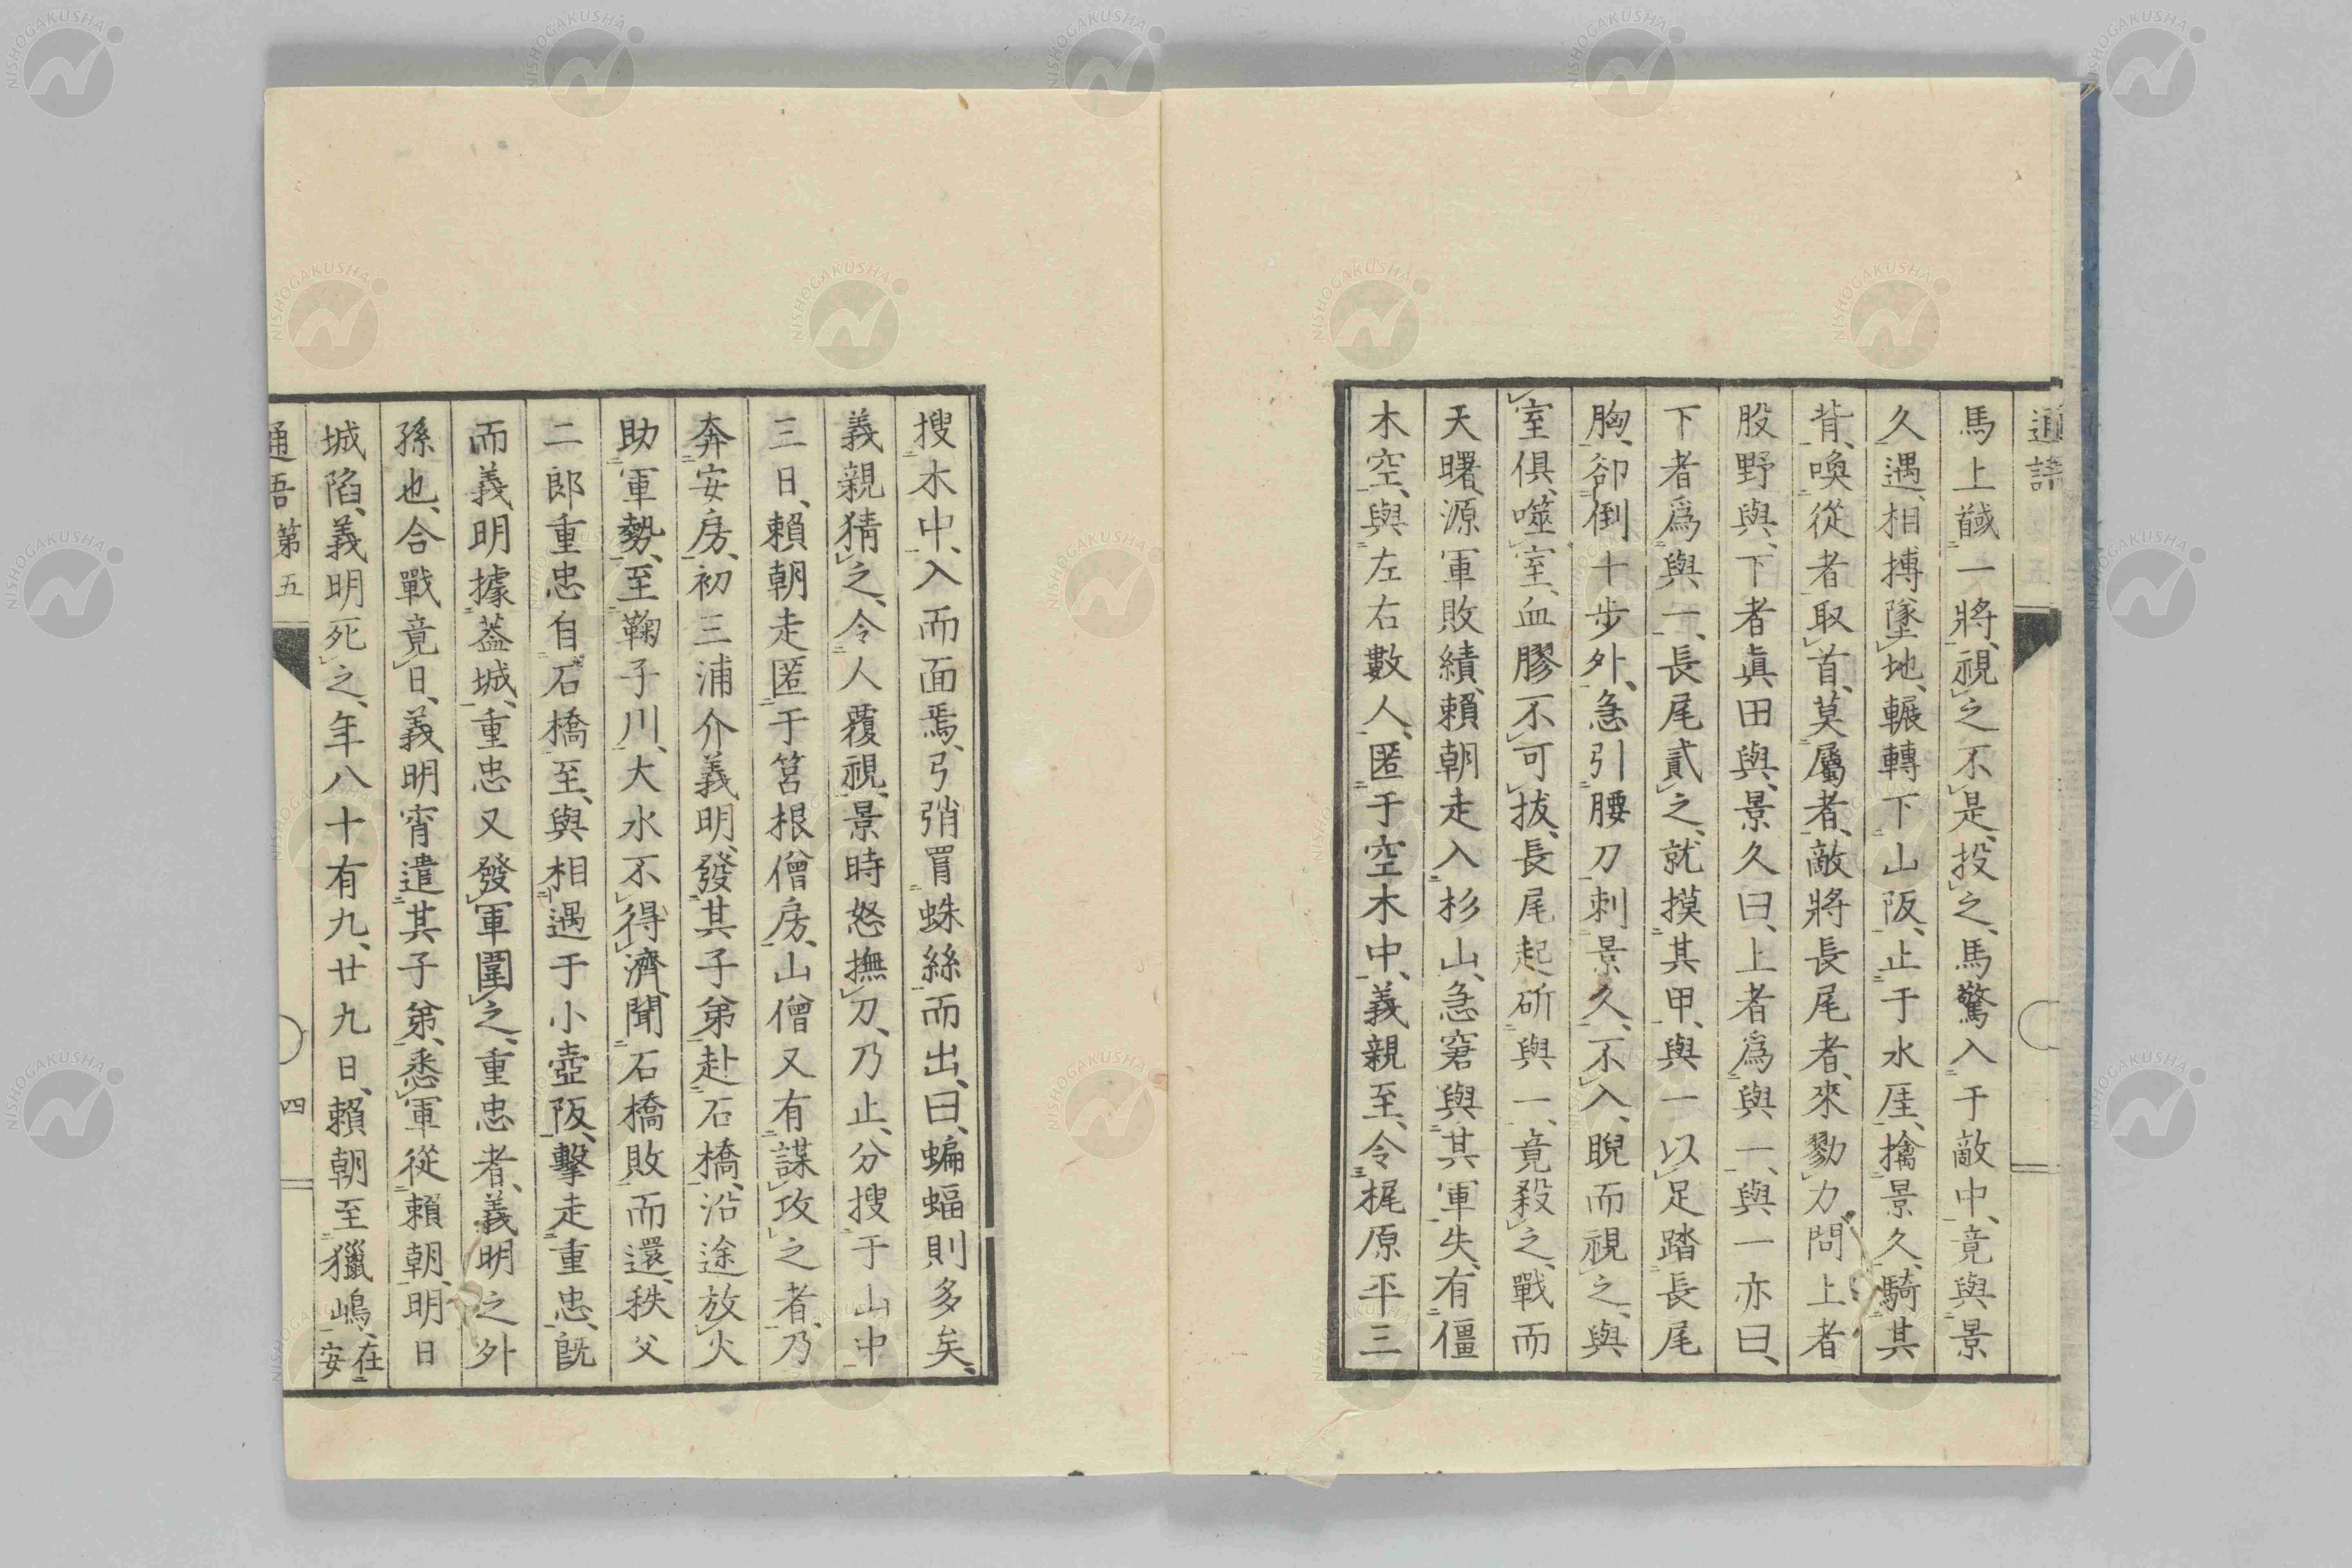 通語
馬上馘一將、視之不是、投之、馬驚入于敵中、竟與景
久遇、相搏墜地、輾轉下山阪、止于水厓、擒景久、騎其
背、喚從者取首、莫屬者、敵將長尾者、來勠力、問上者
股野與、下者眞田與、景久曰、上者爲與一、與一亦曰、
下者爲與一、長尾貳之、就摸其甲、與一以足踏長尾
胸、卻倒十步外、急引腰刀刺景久、不入、睨而視之、與
室俱、噬室、血膠不可拔、長尾起斫與一、竟殺之、戰而
天曙、源軍敗績、賴朝走入杉山、急窘與其軍失、有僵
木空、與左右數人、匿于空木中、義親至、令梶原平三
搜木中、入而面焉、弓弰罥蛛絲而出、曰、蝙蝠則多矣、
義親猜之、令人覆視、景時怒撫刀、乃止、分搜于山中
三日、賴朝走匿于筥根僧房、山僧又有謀攻之者、乃
奔安房、初三浦介義明、發其子弟赴石橋、沿途放火
助軍勢、至鞠子川、大水不得濟、聞石橋敗而還、秩父
二郎重忠自石橋至、與相遇于小壺阪、擊走重忠、既
而義明據葢城、重忠又發軍圍之、重忠者、義明之外
孫也、合戰竟日、義明宵遣其子弟、悉軍從賴朝、明日
城陷、義明死之、年八十有九、廿九日、賴朝至獵嶋、在安
通語 第五
四
NISHOGAKUSHA